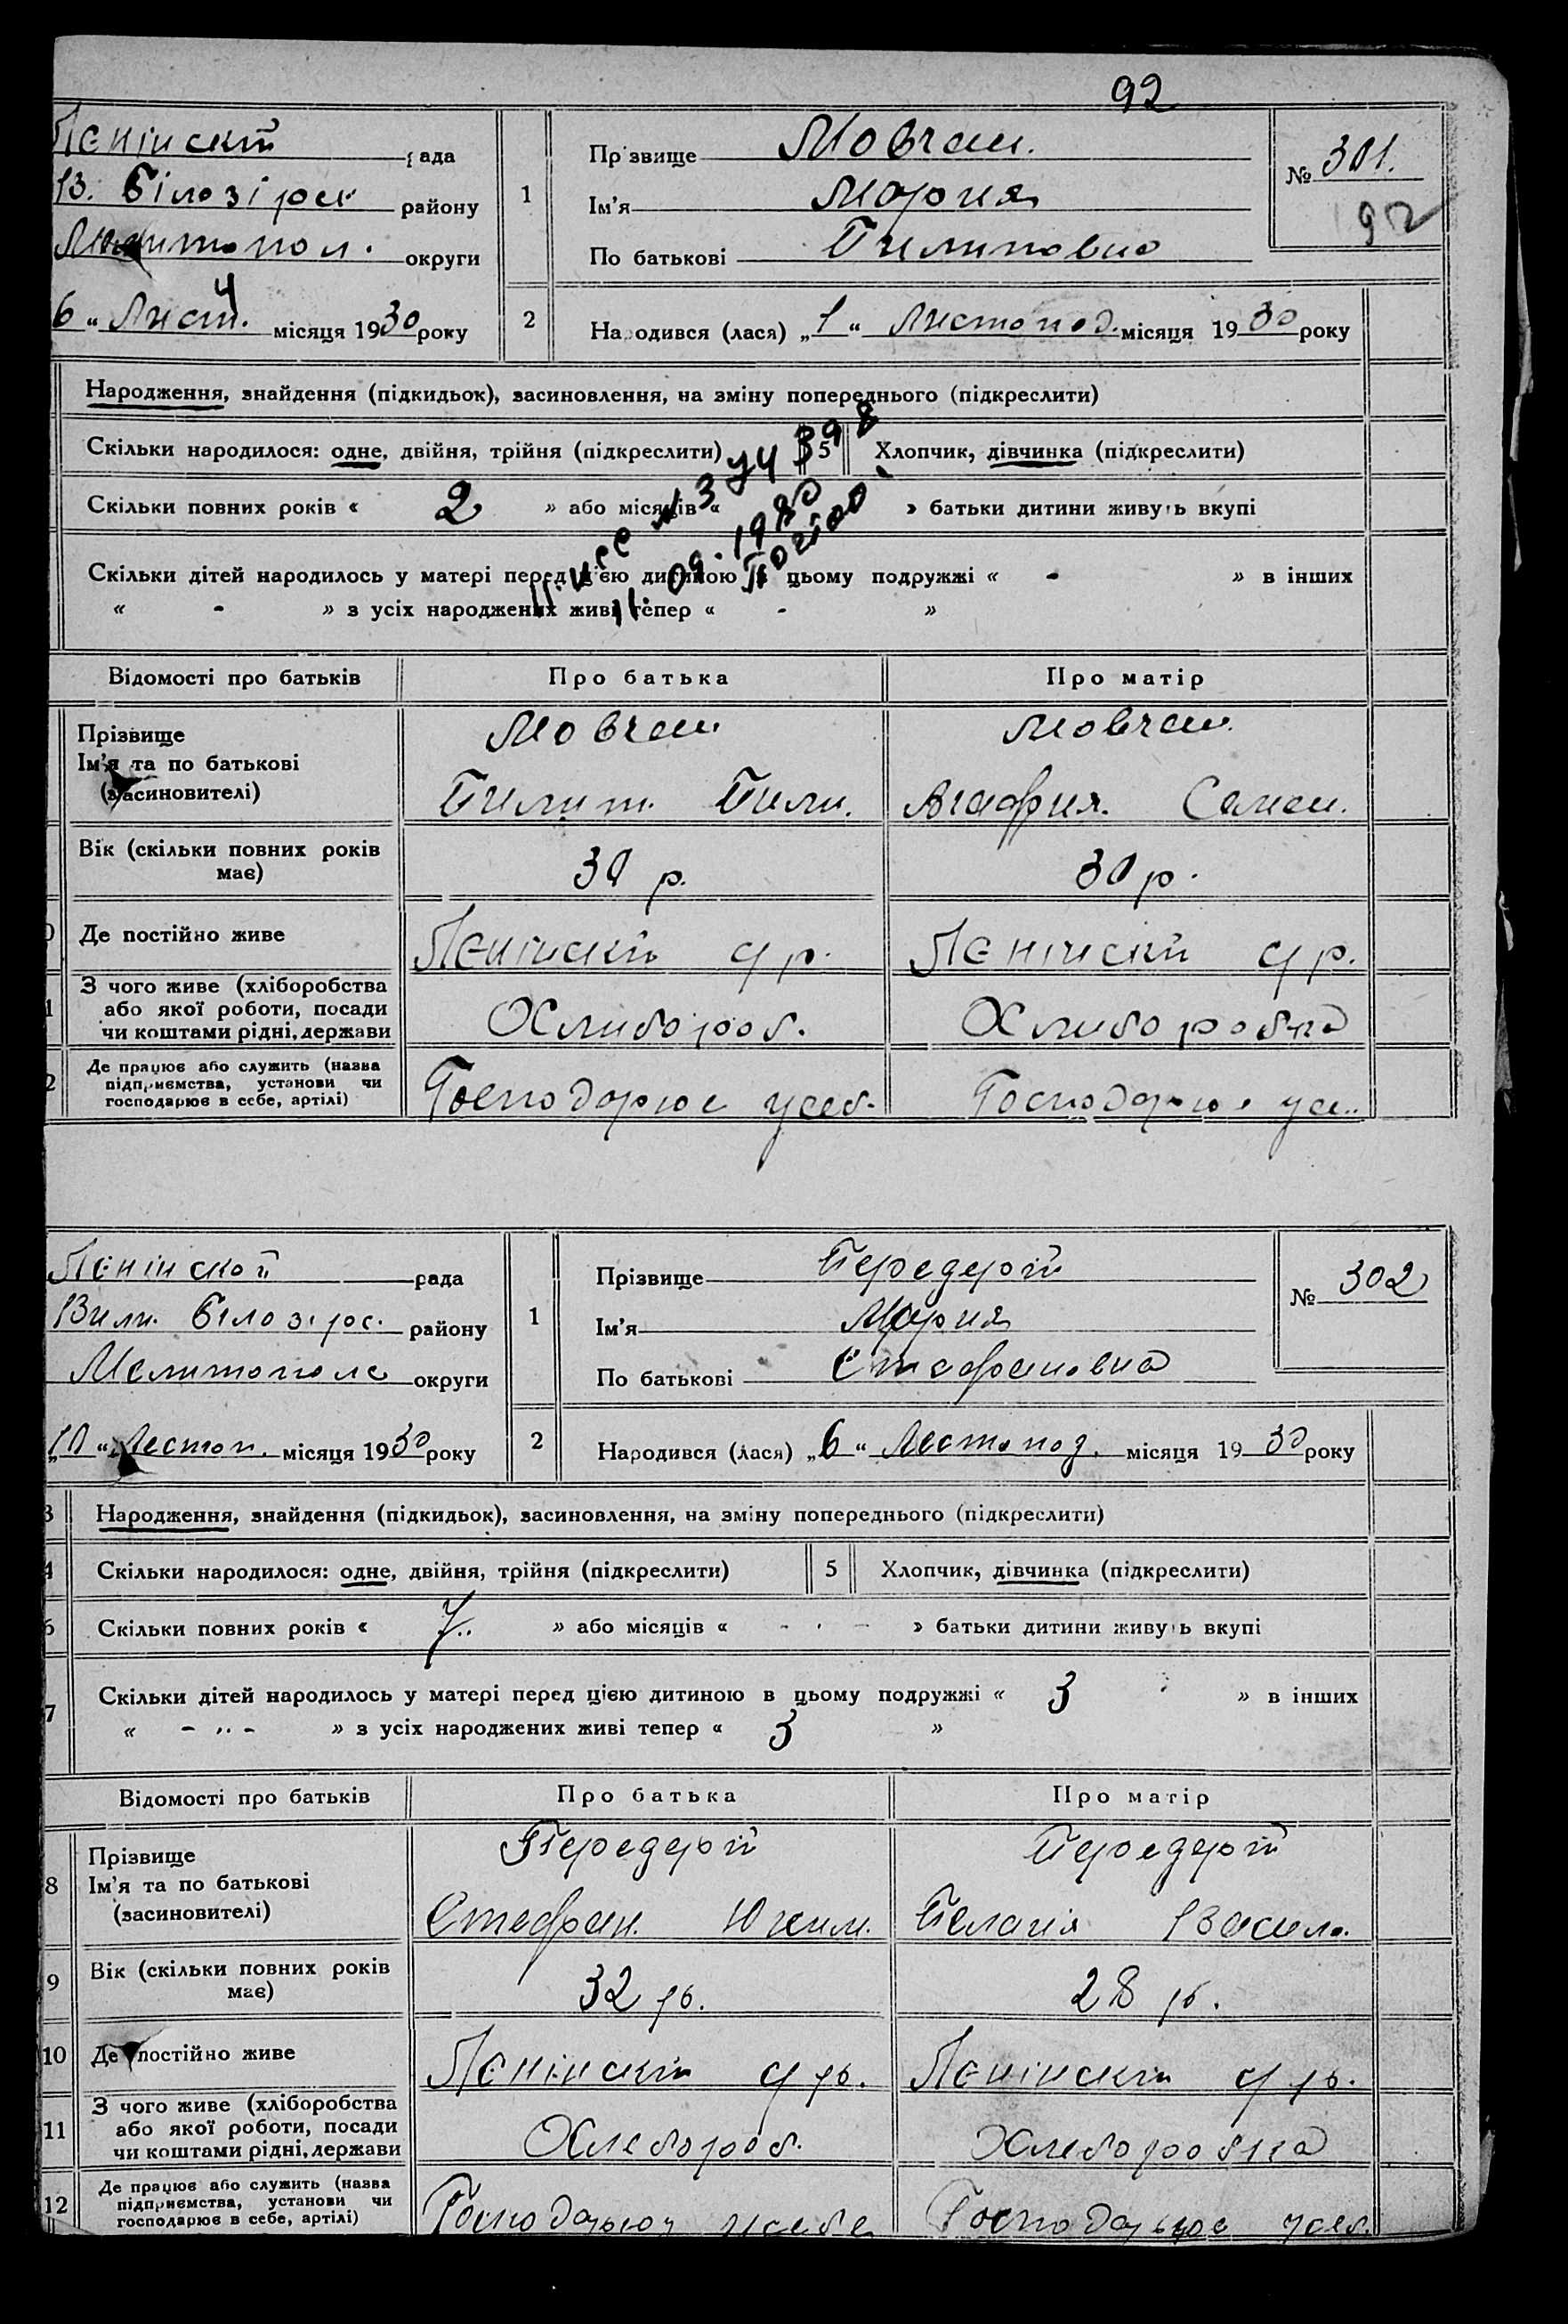 92
Ленінскій рада
В. Білозірск району
Мелитопол. округи
6 “ Лист. місяця 1930 року
1
Прізвище Мовчан.
Ім’я Мария
По батькові Пилиповна
№ 301.
92
2
Народився (лася) „1“ Листопад. місяця 1930 року
Народження, знайдення (підкидьок), засиновлення, на зміну попереднього (підкреслити)
Скільки народилося: одне, двійня, трійня (підкреслити) 5 Хлопчик, дівчинка (підкреслити)
Скільки повних років « 2 » або місяців « » батьки дитини живуть вкупі
Скільки дітей народилось у матері перед цією дитиною в цьому подружжі « - » в інших
« - » з усіх народжених живі тепер « - »
Відомості про батьків Про батька Про матір
Прізвище
Ім’я та по батькові
(засиновителі)
Мовчан Мовчан.
Пилип. Пили. Агафия. Семен.
Вік (скільки повних років
має)
30 р. 30 р.
Де постійно живе Ленінскій с/р. Ленінскій с/р.
З чого живе (хліборобства
або якої роботи, посади
чи коштами рідні, держави
Хлибороб. Хлиборобка
Де працює або служить (назва
підприємства, установи чи
господарює в себе, артілі)
Господарює усеб. Господарює усе..
Ленінской рада
Вили. Білозірс. району
Мелитополе округи
„10“ Лестоп. місяця 1930 року
1
Прізвище Передерій
Ім’я Мария
По батькові Стефановна
№ 302
2
Народився (лася) „6“ Лестопад. місяця 1930 року
3 Народження, знайдення (підкидьок), засиновлення, на зміну попереднього (підкреслити)
4 Скільки народилося: одне, двійня, трійня (підкреслити) 5 Хлопчик, дівчинка (підкреслити)
6 Скільки повних років « 7.. » або місяців « - · - » батьки дитини живуть вкупі
7 Скільки дітей народилось у матері перед цією дитиною в цьому подружжі « 3 » в інших
« - „ - » з усіх народжених живі тепер « 3 »
Відомості про батьків Про батька Про матір
8
Прізвище
Ім’я та по батькові
(засиновителі)
Передерій Передерій
Стефан. Юхим. Пелагія Васил.
9
Вік (скільки повних років
має)
32 р. 28 р.
10 Де постійно живе Ленінскій с/р. Ленінскій с/р.
11
З чого живе (хліборобства
або якої роботи, посади
чи коштами рідні, держави
Хлебороб. Хлеборобка
12
Де працює або служить (назва
підприємства, установи чи
господарює в себе, артілі)
Господарюю усебе Господарьює усеб.